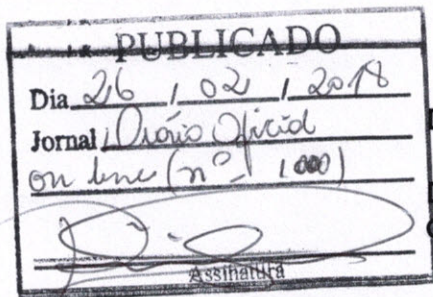 PUBLICADO
Dia 26 / 02 / 2018
Jornal Diário Oficial
on line (nº 1000)
Assinatura